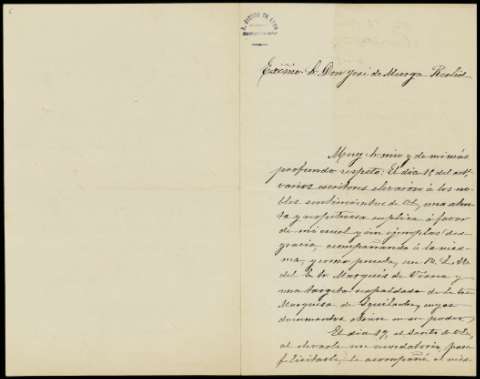 Excmo. Sr. Don José de Murga Reolid
Muy Sr. mio y de mi más
profundo respeto: El dia 12 del act.
varios escritores elevaron á los no-
bles sentimientos de V.E. una aten-
ta y respetuosa suplica á favor
de mi cruel y sin ejemplo des-
gracia, acompañando á la mis-
ma, y como prueba, un B. L. M.
del E. Sr. Marqués de Viana y
una targeta respaldada de la Sra.
Marquesa de Squilache, cuyos
documentos obran en su poder.
El dia 19, el Santo de V.E.,
al elevarle un recordatorio, para
felicitarle, le acompañé el mis-